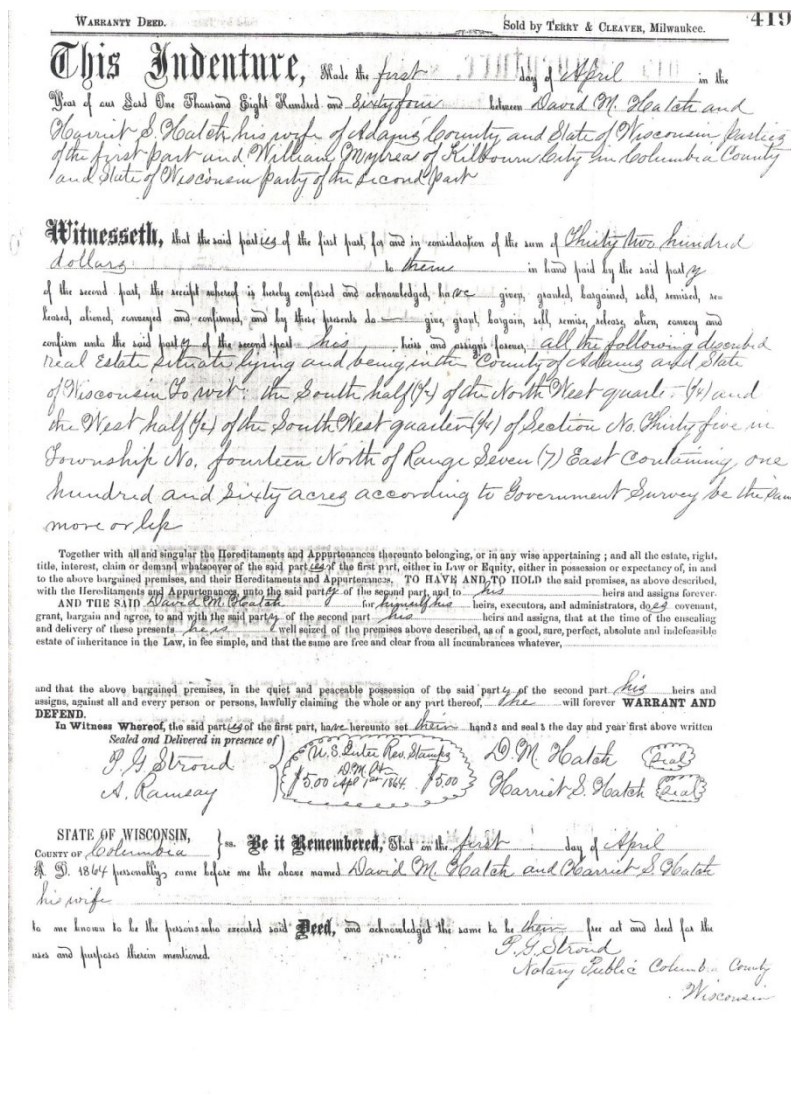 WARRANTY DEED. Sold by TERRY & CLEAVER, Milwaukee. 419
This Indenture, Made the first day of April in the
Year of our Lord One Thousand Eight Hundred and Sixty four between David M. Hatch and
Harriet S. Hatch his wife of Adams County and State of Wisconsin parties
of the first part and William of Kilbourn City in Columbia County
and State of Wisconsin party of the second part
Witnesseth, that the said parties of the first part, for and in consideration of the sum of Thirty two hundred
dollars to them in hand paid by the said party
of the second part, the receipt whereof is hereby confessed and acknowledged, have given, granted, bargained, sold, remised, re-
leased, aliened, conveyed and confirmed, and by these presents do give, grant, bargain, sell, remise, release, alien, convey and
confirm unto the said party of the second part his heirs and assigns forever, all the following described
real Estate situate lying and being in the County of Adams and State
of Wisconsin To wit: the South half (1/2) of the North West quarter (1/4) and
the West half (1/2) of the South West quarter (1/4) of Section No. Thirty five in
Township No, fourteen North of Range Seven (7) East Containing one
hundred and Sixty acres according to Government Survey be the sam
more or less
Together with all and singular the Hereditaments and Appurtenances thereunto belonging, or in any wise appertaining; and all the estate, right,
title, interest, claim or demand whatsoever of the said parties of the first part, either in Law or Equity, either in possession or expectancy of, in and
to the above bargained premises, and their Hereditaments and Appurtenances, TO HAVE AND TO HOLD the said premises, as above described,
with the Hereditaments and Appurtenances, unto the said party of the second part, and to his heirs and assigns forever.
AND THE SAID David M. Hatch for himself his heirs, executors, and administrators, does covenant,
grant, bargain and agree, to and with the said party of the second part his heirs and assigns, that at the time of the ensealing
and delivery of these presents he is well seized of the premises above described, as of a good, sure, perfect, absolute and indefeasible
estate of inheritance in the Law, in fee simple, and that the same are free and clear from all incumbrances whatever,
and that the above bargained premises, in the quiet and peaceable possession of the said party of the second part his heirs and
assigns, against all and every person or persons, lawfully claiming the whole or any part thereof, he will forever WARRANT AND
DEFEND.
In Witness Whereof, the said parties of the first part, have hereunto set their hands and seals the day and year first above written
Sealed and Delivered in presence of
P. G. Stroud
A. Ramsay
U. S. Inter Rev. Stamps
D. M. H.
$5.00 Apl 1st 1864. $5.00
D. M. Hatch Seal
Harriet S. Hatch Seal
STATE OF WISCONSIN,
COUNTY OF Columbia } ss. Be it Remembered, That on the first day of April
A. D. 1864 personally came before me the above named David M. Hatch and Harriet S. Hatch
his wife
to me known to be the persons who executed said Deed, and acknowledged the same to be their free act and deed for the
uses and purposes therein mentioned.
P. G. Stroud
Notary Public Columbia County
Wisconsin